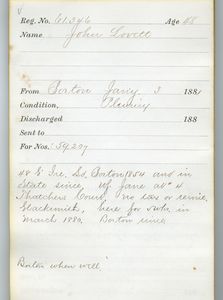 Reg. No. 61,346 Age 48
Name John Lovett
From Boston Jany 3 1881
Condition,
Discharged 188
Sent to
For Nos. 59,207
48 S Ire. Boston 1854 and in
state since, Jane at 4
Thatchers Court, no tax or service,
Blacksmith, here for 3 wks in
March 1880, Boston since
Boston when well